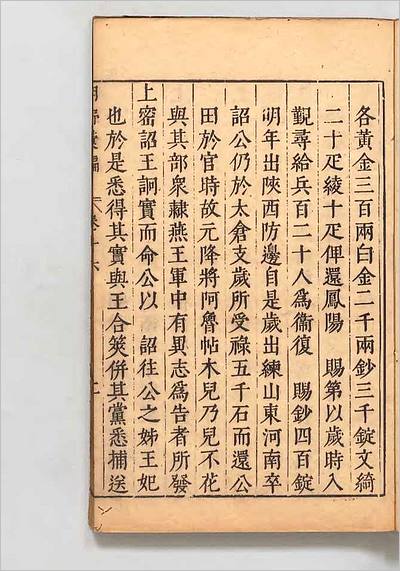 各黃金三百兩白金二千兩鈔三千錠文綺
二十疋綾十疋俾還鳳陽　賜第以歲時入
覲尋給兵百二十人爲衞復　賜鈔四百錠
明年出陝西防邊自是歲出練山東河南卒
詔公仍於太倉支歲所受祿五千石而還公
田於官時故元降將阿魯帖木兒乃兒不花
與其部衆隸燕王軍中有異志爲告者所發
上密詔王詗實而命公以　詔往公之姊王妃
也於是悉得其實與王合筴併其黨悉捕送